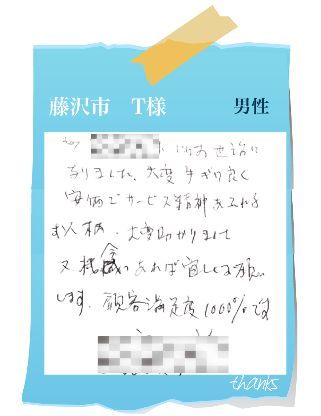 藤沢市 T様 男性
にはお世話に
なりました、大変手ぎわ良く
安価でサービス精神あふれる
お人柄、大変助かりました
又機会があれば宜しくお願い
します、顧客満足度1000%です
thanks